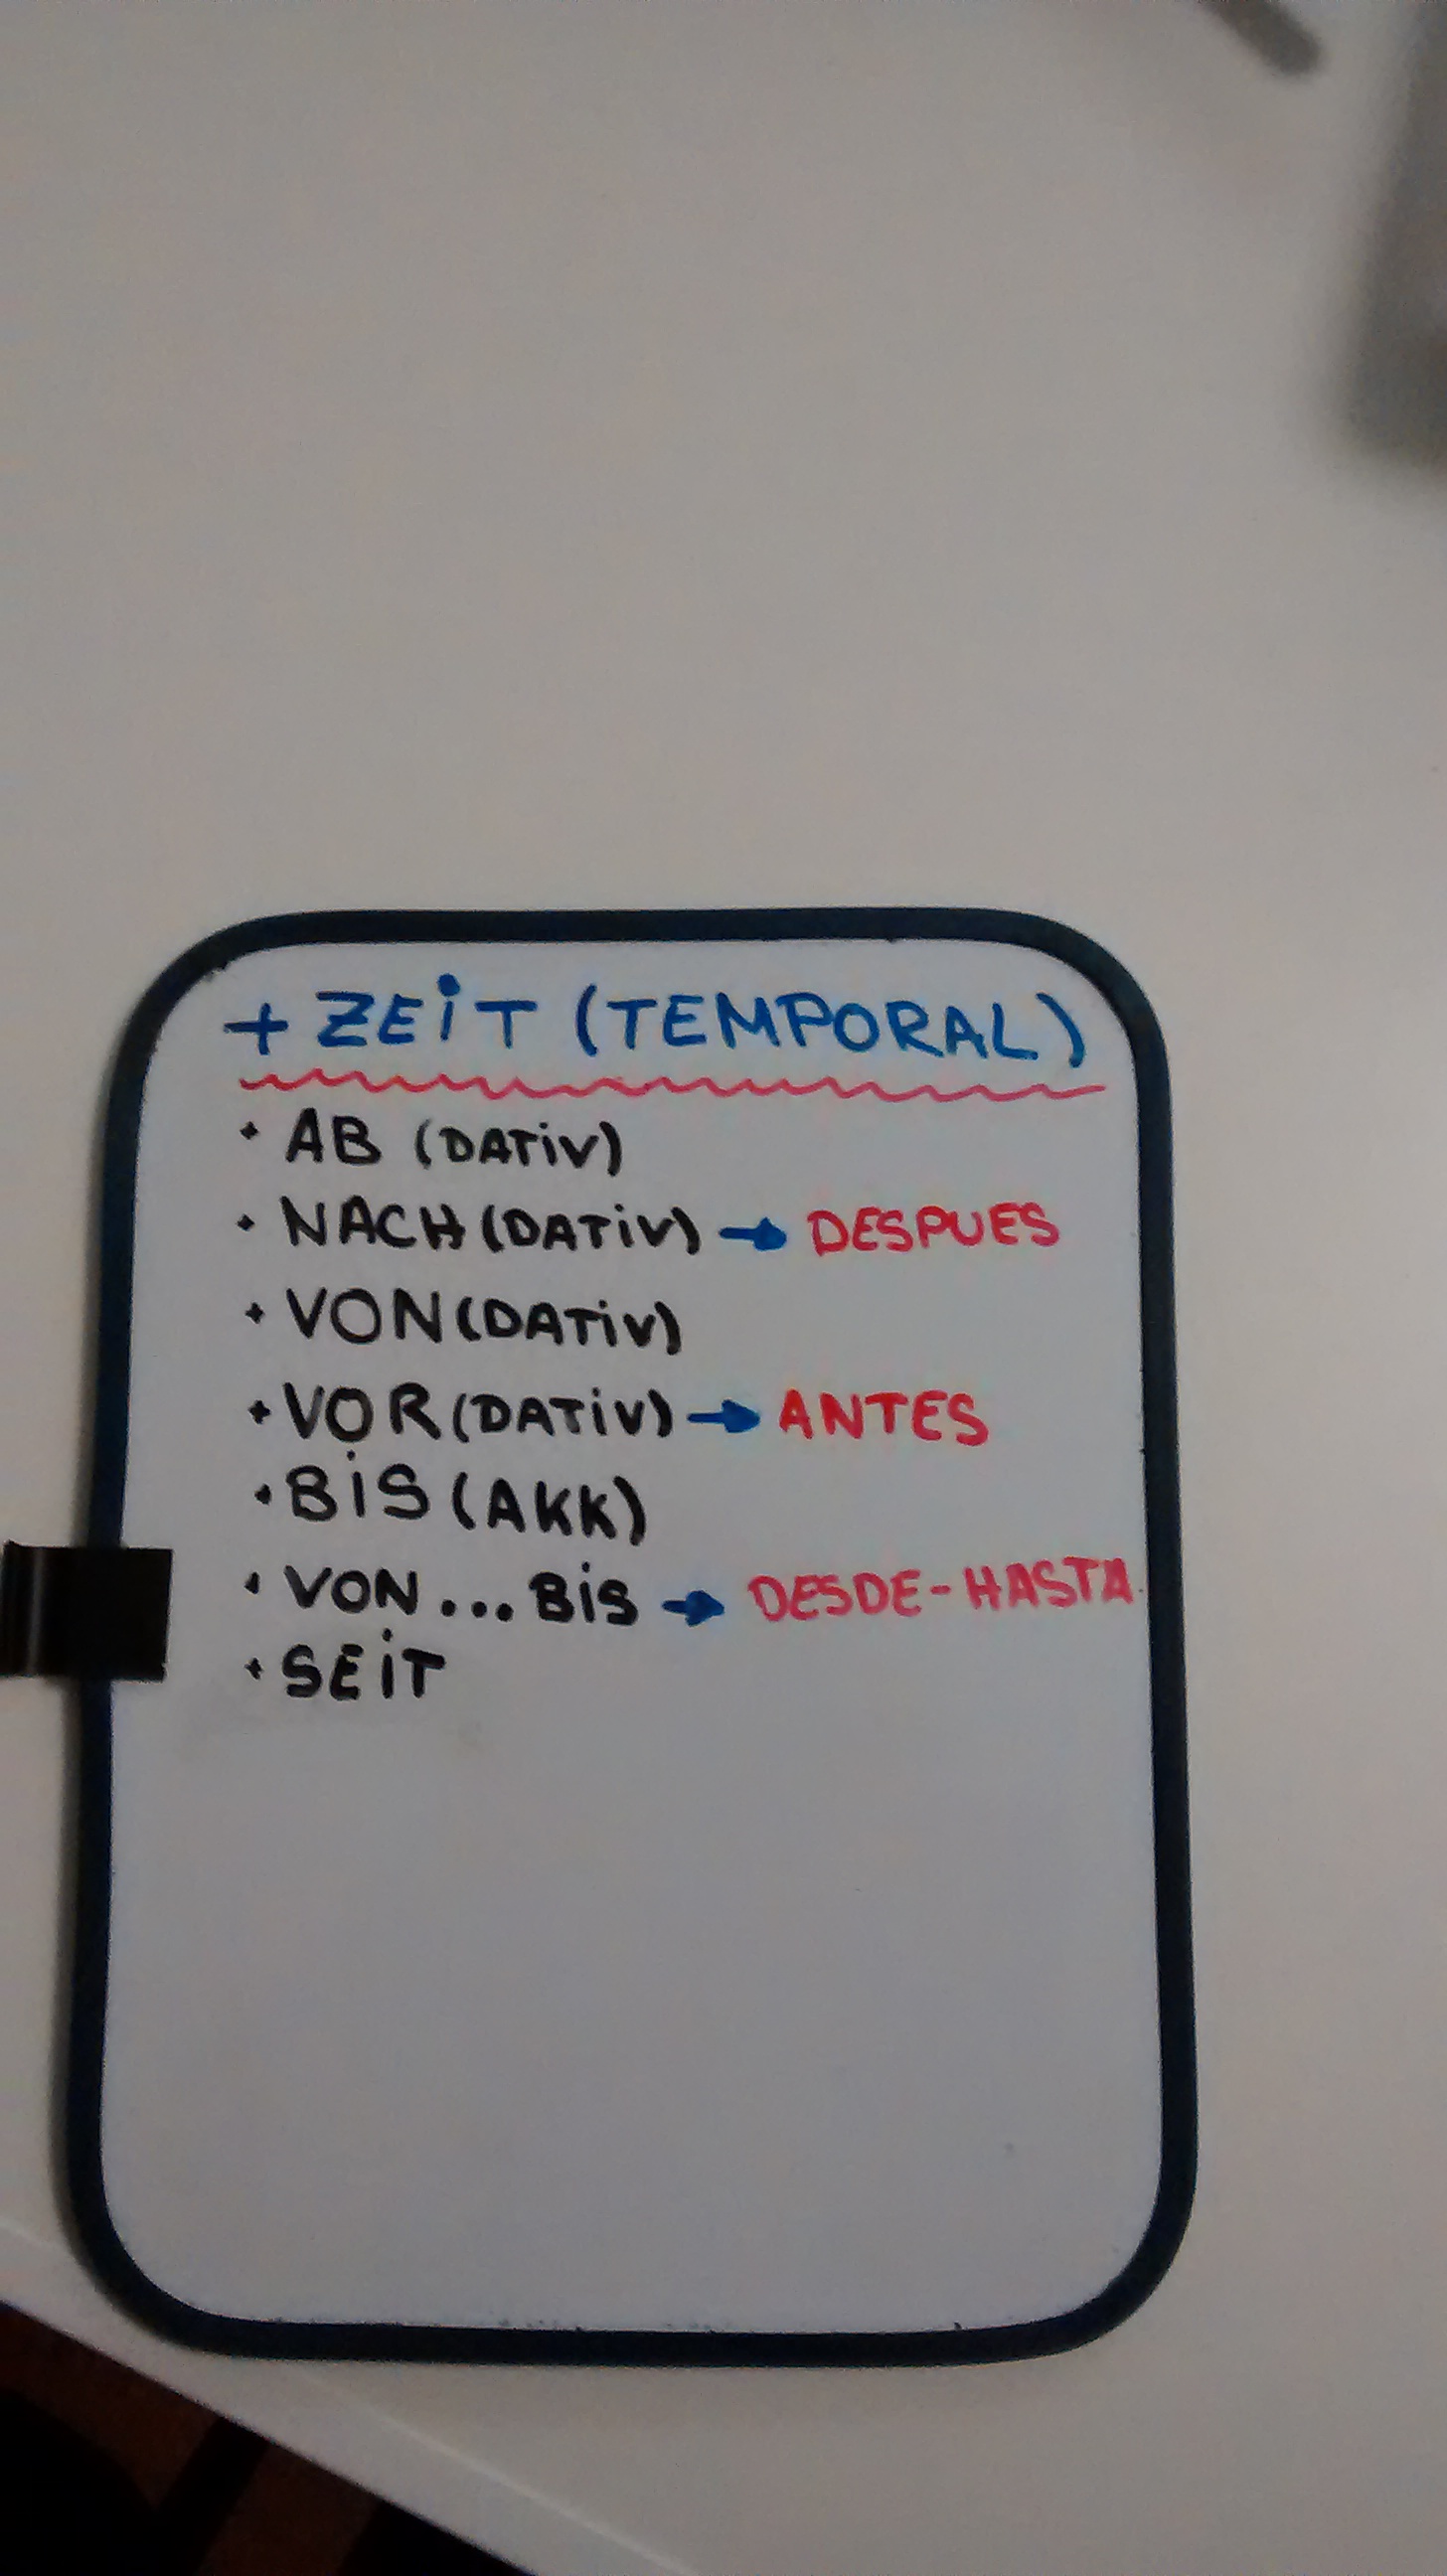 + ZEiT (TEMPORAL)
· AB (DATiV)
· NACH (DATiV) → DESPUES
· VON (DATiV)
· VOR (DATiV) → ANTES
· BiS (AKK)
· VON... BiS → DESDE-HASTA
· SEiT